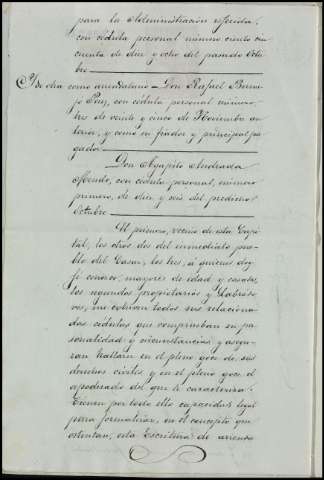 para la Administración referida,
con cédula personal número ciento cin
cuenta de diez y ocho del pasado Octu
bre
Y de otra como arrendatario = Don Rafael
Paz, con cédula personal número
tres de veinte y cinco de Noviembre an
terior, y como su fiador y principal pa
gador
Don Agapito Andrada
Mendo, con cédula personal, número
primero, de diez y seis del predicho
Octubre
El primero, vecino de esta Capi
tal, los otros dos del inmediato pue
blo del Casar, los tres, a quienes doy
fé conozco, mayores de edad y casados,
los segundos propietarios y labrado
res, me exhiben todos sus relaciona
das cédulas que comprueban su per
sonalidad y circunstancias y asegu
ran hallarse en el pleno goce de sus
derechos civiles y en el pleno goce el
apoderado del que le caracteriza.
Tienen por todo ello capacidad legal
para formalizar, en el concepto que
ostentan, esta Escritura de arrien